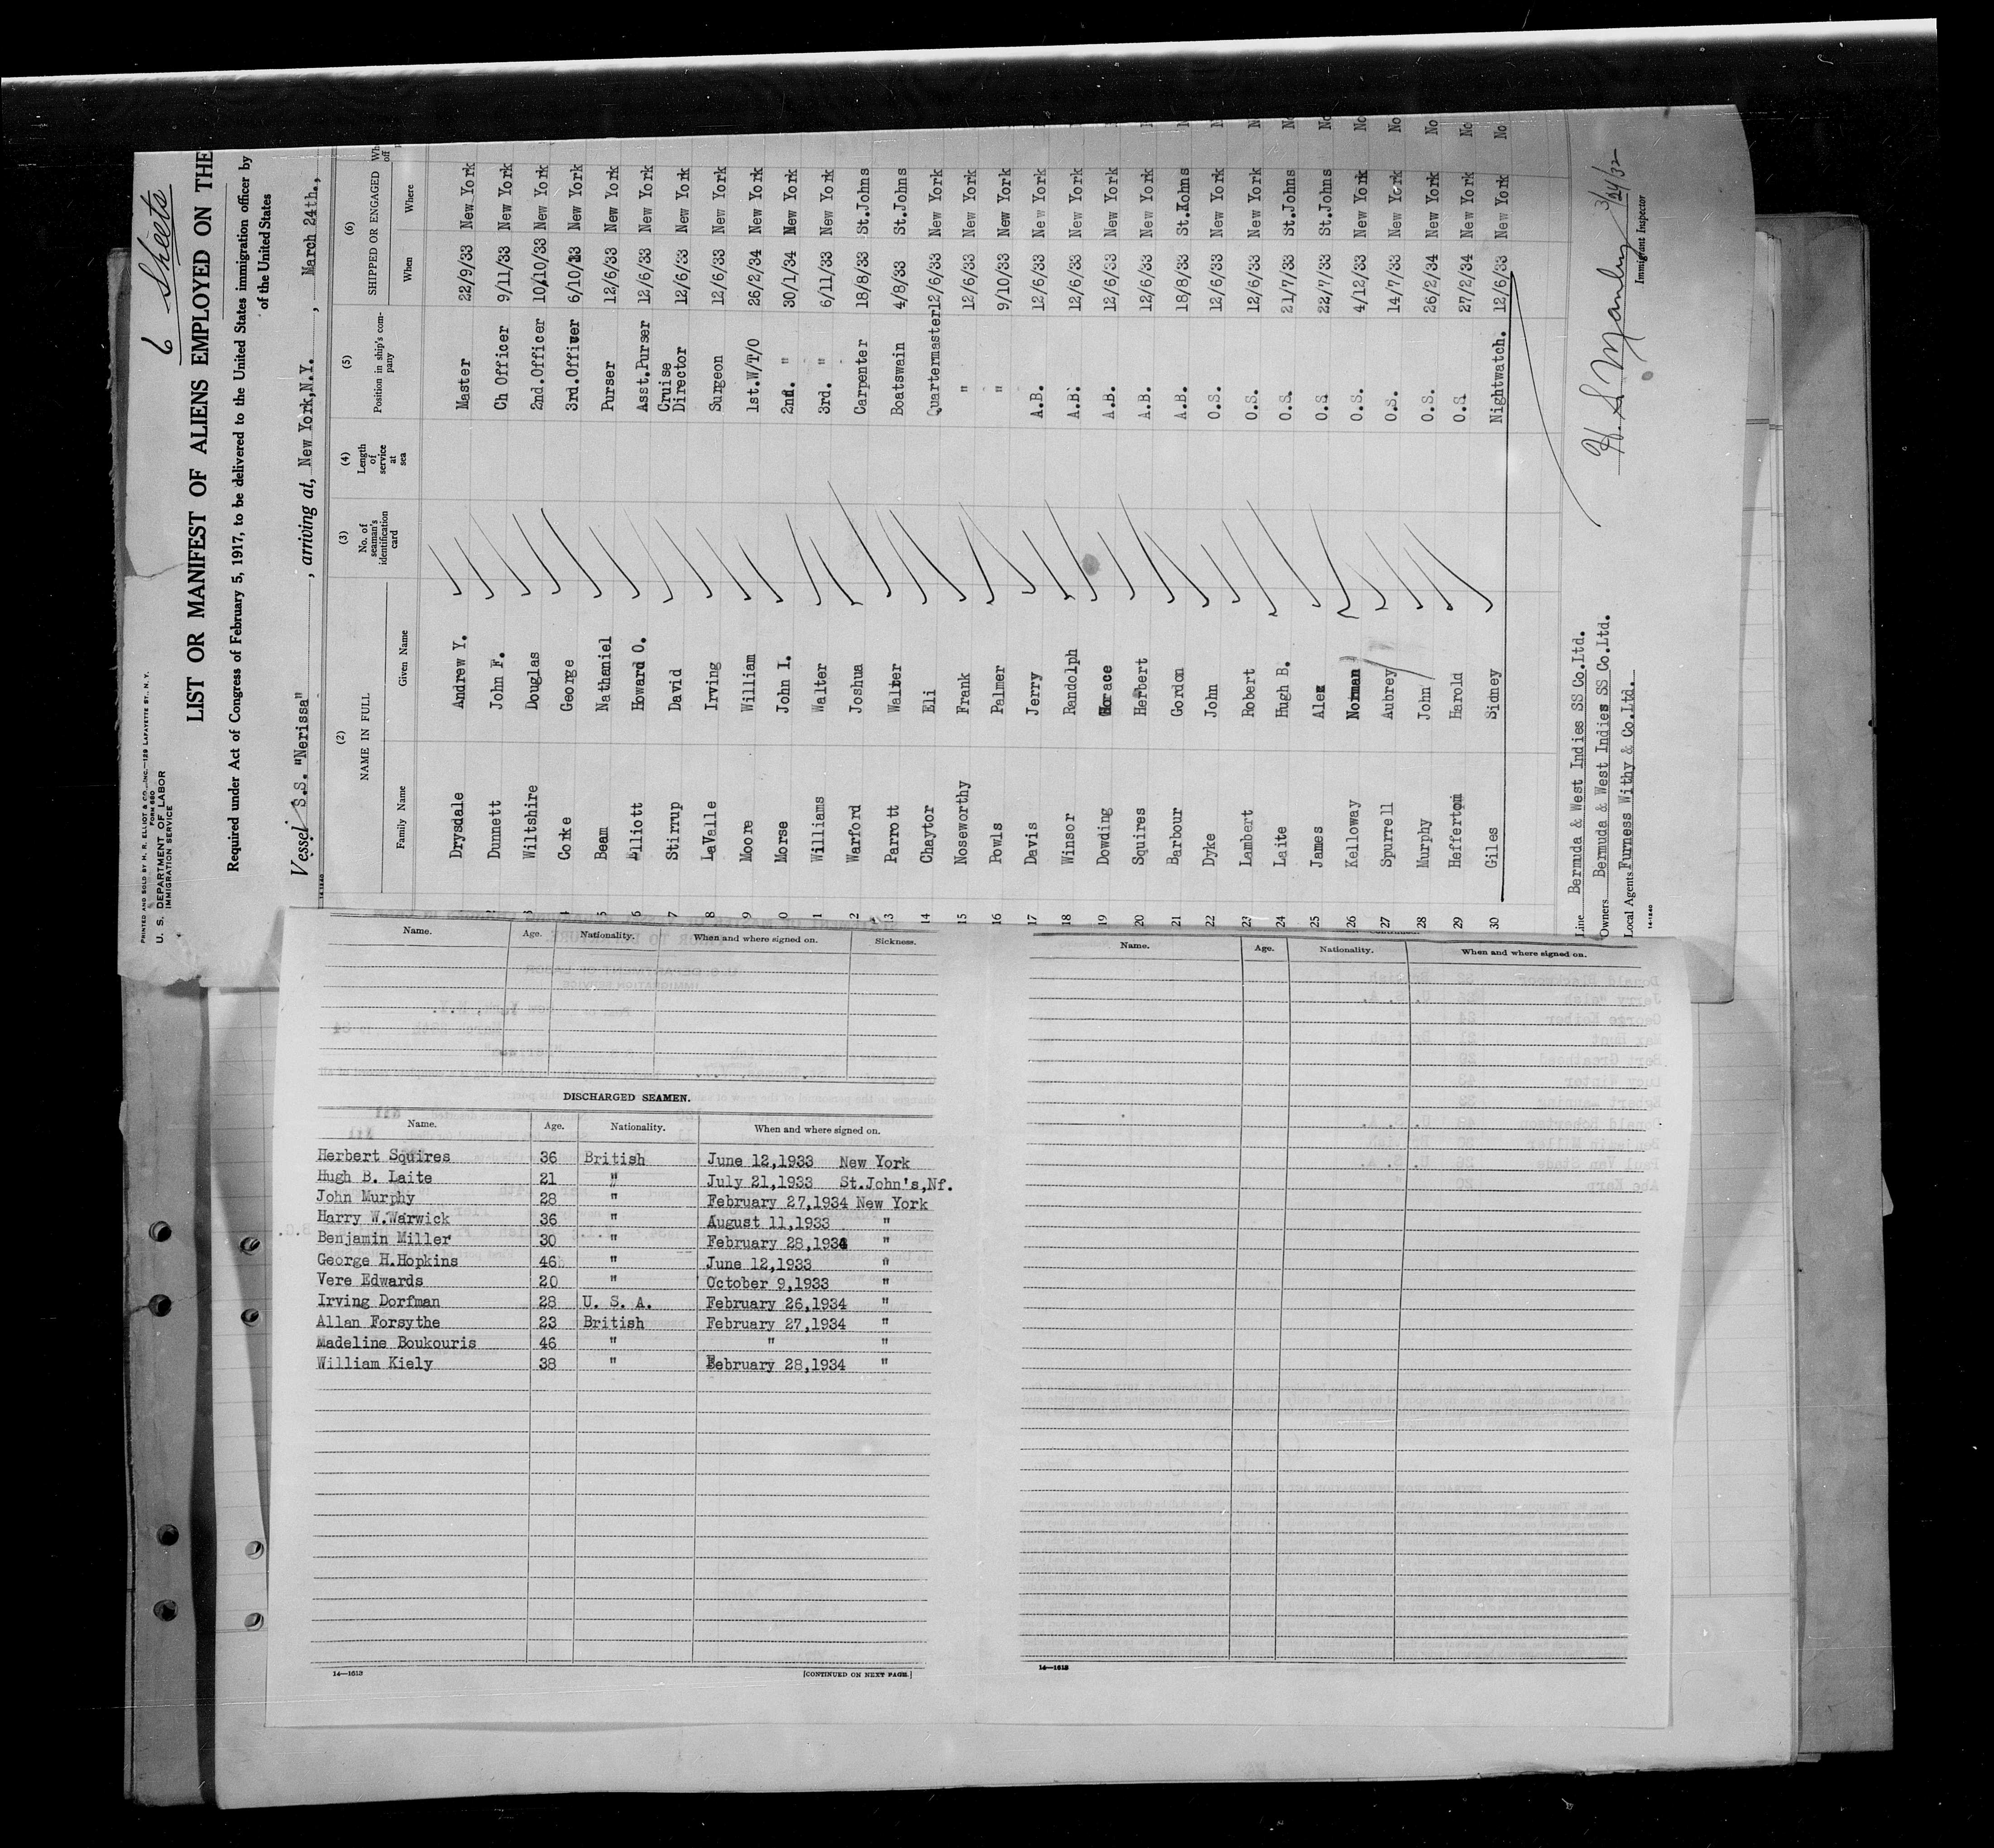 6 Sheets
PRINTED AND SOLD BY H. R. ELLIOT & CO., INC.—129 LAFAYETTE ST., N. Y.
FORM 680
U. S. DEPARTMENT OF LABOR
IMMIGRATION SERVICE
LIST OR MANIFEST OF ALIENS EMPLOYED ON THE
Required under Act of Congress of February 5, 1917, to be delivered to the United States immigration officer by
of the United States
Vessel S.S. "Nerissa", arriving at, New York, N.Y., March 24th.,
14-1240
(2) (3) (4) (5) (6)
NAME IN FULL No. of seaman's identification card Length of service at sea Position in ship's company SHIPPED OR ENGAGED
Family Name Given Name When Where
Drysdale Andrew Y. Master 22/9/33 New York
2 Dunnett John F. Ch Officer 9/11/33 New York
3 Wiltshire Douglas 2nd.Officer 10/10/33 New York
4 Corke George 3rd.Officer 6/10/33 New York
5 Beam Nathaniel Purser 12/6/33 New York
6 Elliott Howard O. Asst.Purser 12/6/33 New York
7 Stirrup David Cruise Director 12/6/33 New York
8 LaValle Irving Surgeon 12/6/33 New York
9 Moore William 1st.W/T/O 26/2/34 New York
0 Morse John I. 2nd. " 30/1/34 New York
1 Williams Walter 3rd. " 6/11/33 New York
2 Warford Joshua Carpenter 18/8/33 St.Johns
13 Parrott Walter Boatswain 4/8/33 St.Johns
14 Chaytor Eli Quartermaster 12/6/33 New York
15 Noseworthy Frank " 12/6/33 New York
16 Powls Palmer " 9/10/33 New York
17 Davis Jerry A.B. 12/6/33 New York
18 Winsor Randolph A.B. 12/6/33 New York
19 Dowding Horace A.B. 12/6/33 New York
20 Squires Herbert A.B. 12/6/33 New York
21 Barbour Gordon A.B. 18/8/33 St.Kohns
22 Dyke John O.S. 12/6/33 New York
23 Lambert Robert O.S. 12/6/33 New York No
24 Laite Hugh B. O.S. 21/7/33 St.Johns No
25 James Alex O.S. 22/7/33 St.Johns No
26 Kelloway Norman O.S. 4/12/33 New York No
27 Spurrell Aubrey O.S. 14/7/33 New York No
28 Murphy John O.S. 26/2/34 New York No
29 Hefferton Harold O.S. 27/2/34 New York No
30 Giles Sidney Nightwatch. 12/6/33 New York No
Line Bermuda & West Indies SS Co.Ltd.
Owners Bermuda & West Indies SS Co.Ltd.
Local Agents Furness Withy & Co.Ltd.
14-1240
Immigrant Inspector
Name. Age. Nationality. When and where signed on. Sickness.
DISCHARGED SEAMEN.
Name. Age. Nationality. When and where signed on.
Herbert Squires 36 British June 12,1933 New York
Hugh B. Laite 21 " July 21,1933 St.John's,Nf.
John Murphy 28 " February 27,1934 New York
Harry W.Warwick 36 " August 11,1933 "
Benjamin Miller 30 " February 28,1934 "
George H.Hopkins 46 " June 12,1933 "
Vere Edwards 20 " October 9,1933 "
Irving Dorfman 28 U. S. A. February 26,1934 "
Allan Forsythe 23 British February 27,1934 "
Madeline Boukouris 46 " " "
William Kiely 38 " February 28,1934 "
14—1613 [CONTINUED ON NEXT PAGE.]
Name. Age. Nationality. When and where signed on.
14—1613